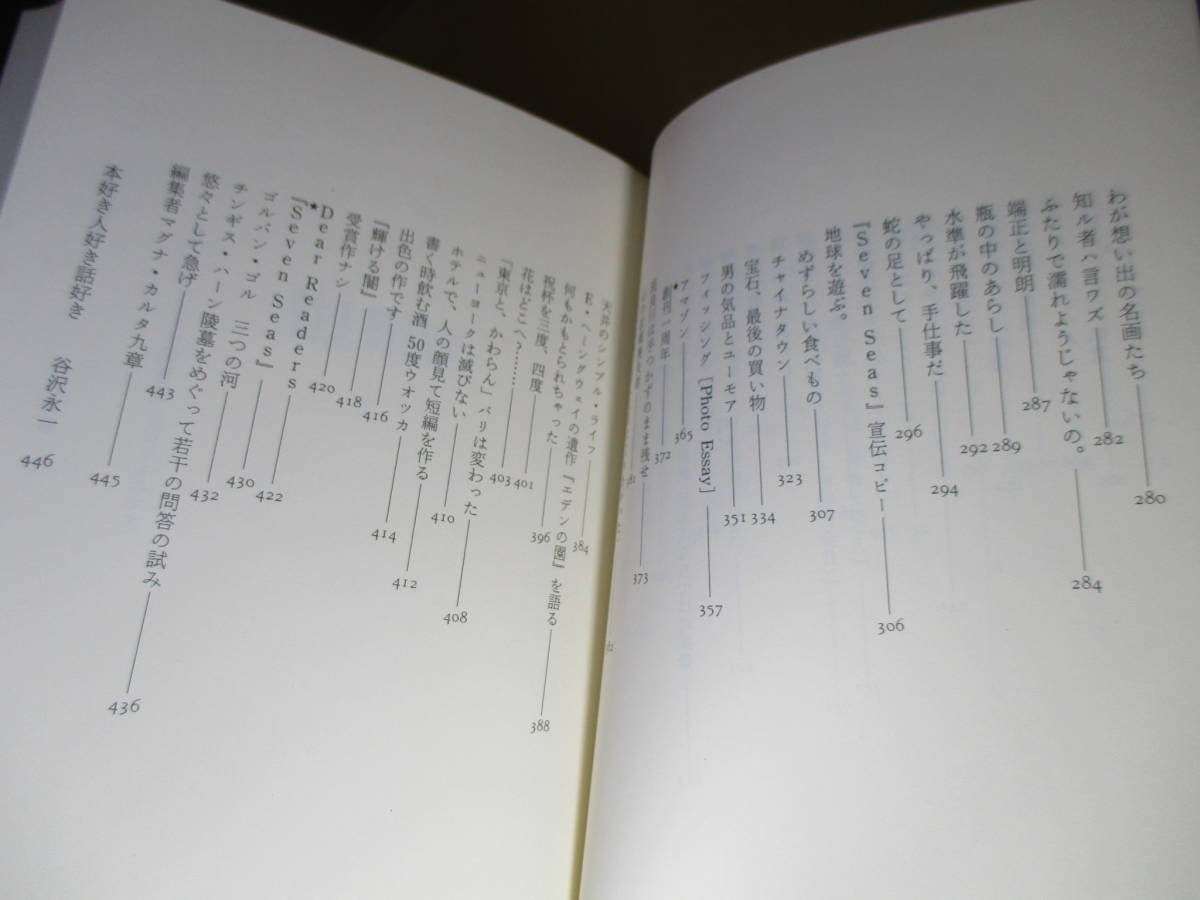 わが想い出の名画たち 280
知ル者ハ言ワズ 282
ふたりで濡れようじゃないの。 284
端正と明朗 287
瓶の中のあらし 289
水準が飛躍した 292
やっぱり、手仕事だ 294
蛇の足として 296
『Seven Seas』宣伝コピー 306
地球を遊ぶ。
めずらしい食べもの 307
チャイナタウン 323
宝石、最後の買い物 334
男の気品とユーモア 351
フィッシング [Photo Essay] 357
アマゾン 365
★創刊一周年 372
手つかずのまま残せ 373
天井のシンプル・ライフ 384
E・ヘミングウェイの遺作『エデンの園』を語る 388
何もかもとられちゃった 396
祝杯を三度、四度 401
花はどこへ?…… 403
「東京と、かわらん」パリは変わった 408
ニューヨークは滅びない 410
ホテルで、人の顔見て短編を作る 412
書く時飲む酒 50度ウオッカ 414
出色の作です 416
『輝ける闇』 418
受賞作ナシ 420
★Dear Readers 422
『Seven Seas』 430
ゴルバン・ゴル 三つの河 432
チンギス・ハーン陵墓をめぐって若干の問答の試み 436
悠々として急げ 443
編集者マグナ・カルタ九章 445
本好き人好き話好き 谷沢永一 446